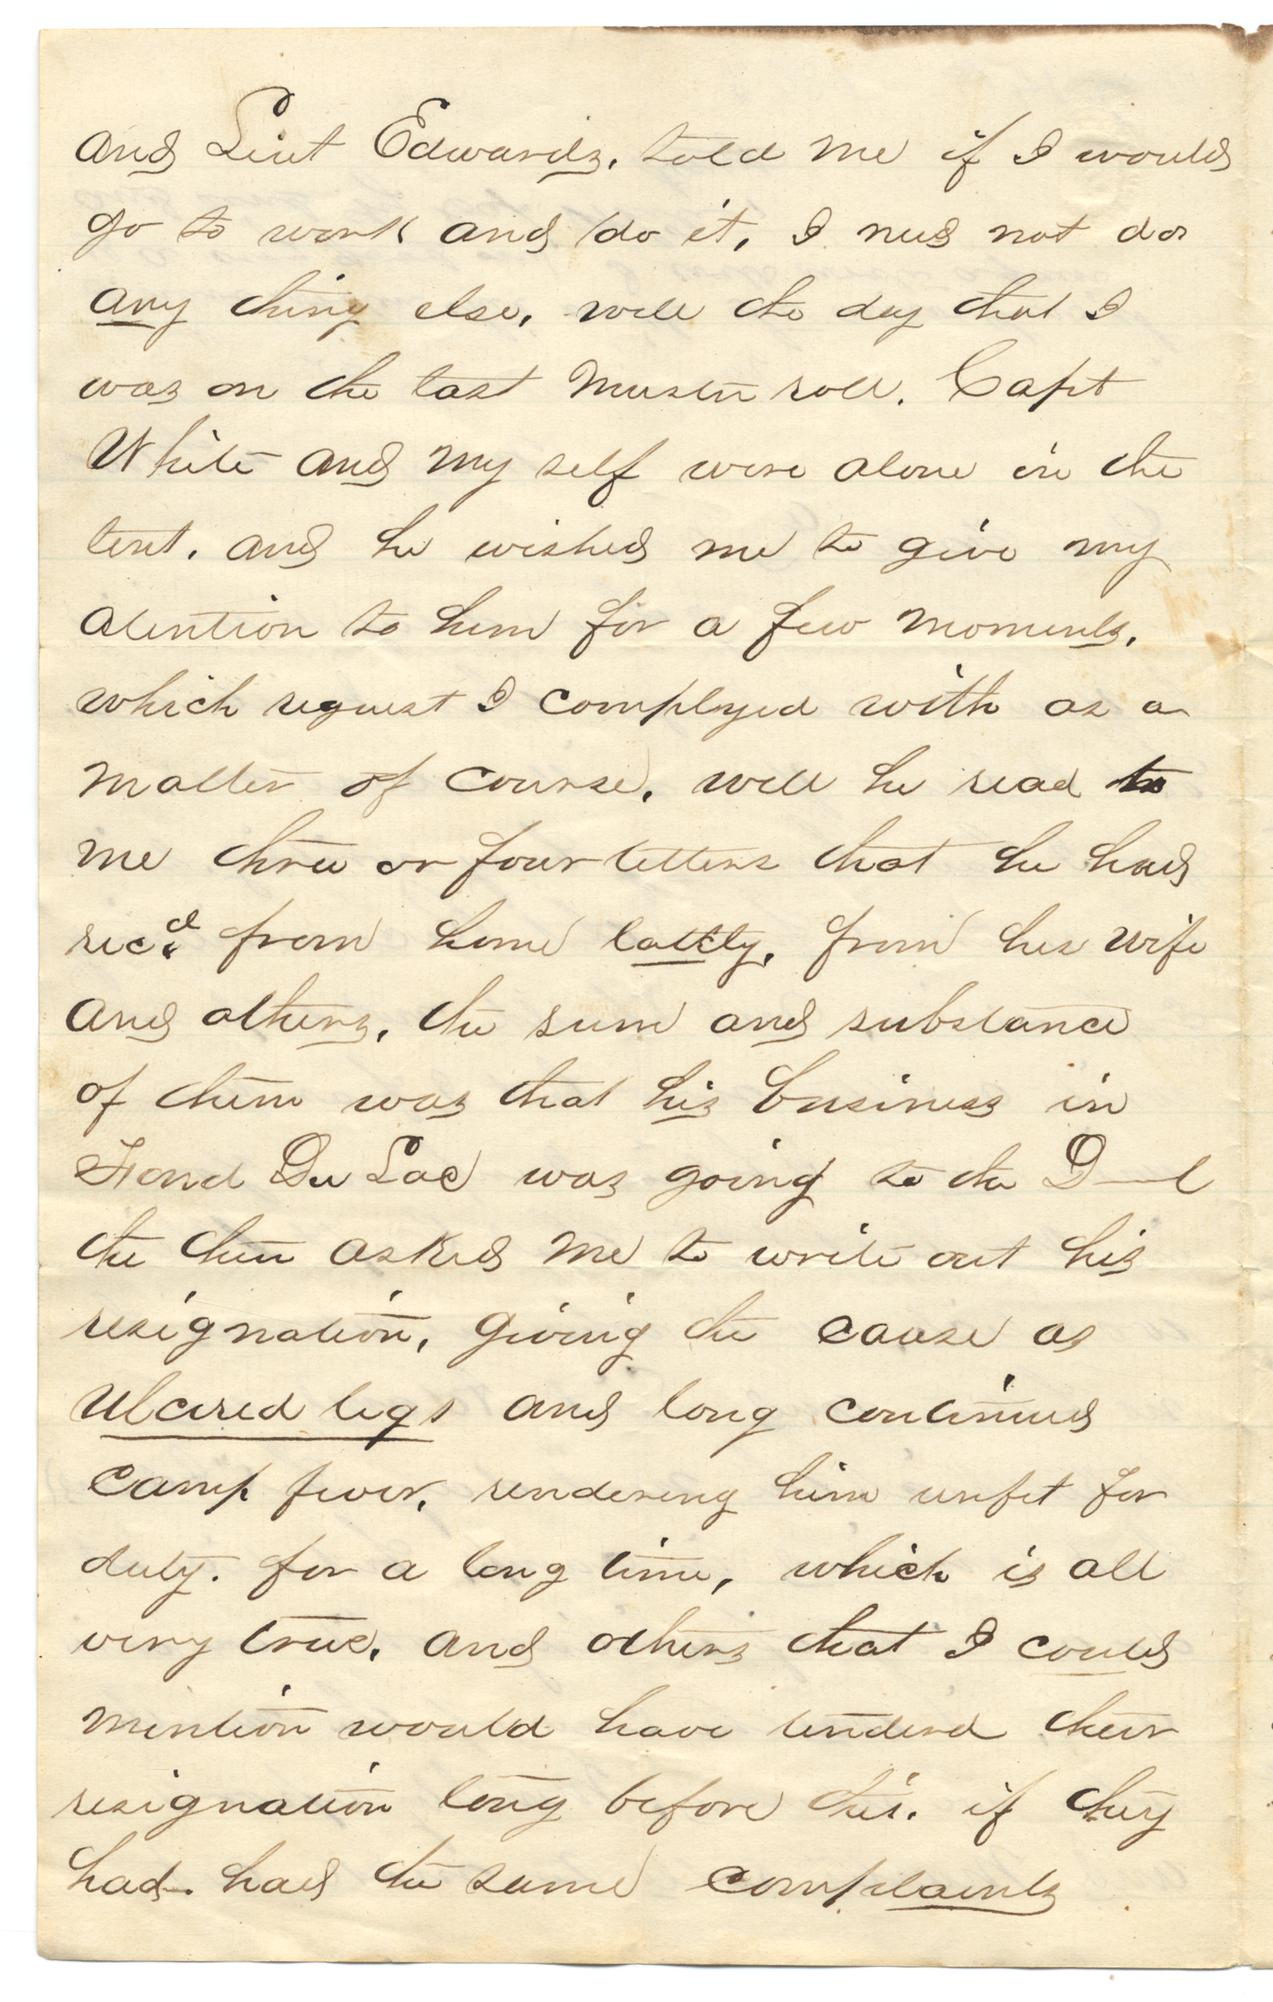 and Liut Edwards, told me if I would
go to work and do it, I nud not do
any thing else, well the day that I
was on the last muster roll. Capt
White and my self were alone in the
tent. and he wished me to give my
atention to him for a few moments,
which request I complyed with as a
matter of course, well he read to
me three or four letters that he had
recd. from home lattly, from his wife
and others, the sum and substance
of them was that his business in
Fond Du Lac was going to the D—l
the then asked me to write out his
resignation, giving the cause as
Ulcered legs and long continued
camp fever, rendering him unfit for
duty. for a long time, which is all
very true, and others that I could
mention would have tenderd their
resignation long before this. if they
had had the same complaints